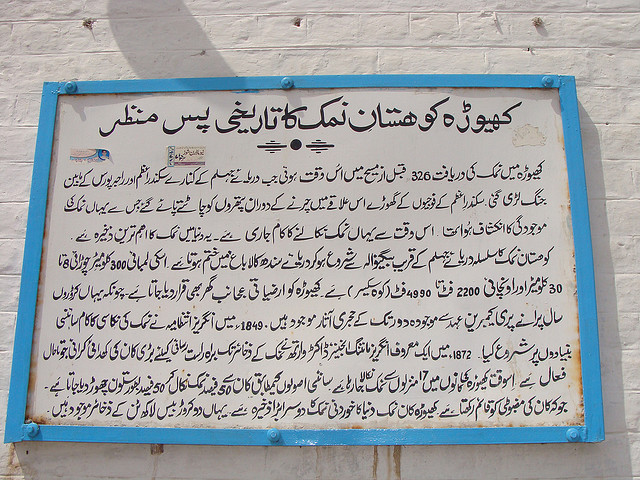 کھیوڑہ کوھستان نمک کا تاریخی پس منظر
کھیوڑہ میں نمک کی دریافت 326 قبل از مسیح میں اس وقت ہوئی جب دریائے جہلم کے کنارے سکندر اعظم اور راجہ پورس کے مابین
جنگ لڑی گئی۔ سکندر اعظم کے فوجیوں کے گھوڑے اس علاقے میں چرنے کے دوران پتھروں کو چاٹتے پائے گئے جس سے یہاں نمک کی
موجودگی کا انکشاف ہوا تھا۔ اس وقت سے یہاں نمک نکالنے کا کام جاری ہے۔ یہ دنیا میں نمک کا اہم ترین ذخیرہ ہے۔
کوھستان نمک کا سلسلہ دریائے جہلم کے قریب بیگنوالہ سے شروع ہو کر دریائے سندھ کالا باغ میں ختم ہوتا ہے۔ اسکی لمبائی 300 کلومیٹر چوڑائی 8 تا
30 کلومیٹر اور اونچائی 2200 فٹ تا 4990 فٹ (کوہ سکیسر) ہے۔ کھیوڑہ کو ارضیاتی عجائب گھر بھی قرار دیا جاتا ہے۔ چونکہ یہاں کروڑوں
سال پرانے پری کیمبرین عہد سے موجودہ دور تک کے حجری آثار موجود ہیں۔ 1849ء میں انگریز انتظامیہ نے نمک کی نکاسی کا کام سائنسی
بنیادوں پر شروع کیا۔ 1872ء میں ایک معروف انگریز مائننگ انجینئر ڈاکٹر وارتھ نے نمک کے ذخائر تک براہ راست رسائی کیلئے بڑی کان کی کھدائی کرائی جو تاحال
فعال ہے۔ اسوقت کھیوڑہ کی کانوں میں 17 منزلوں سے نمک نکالا جا رہا ہے۔ سائنسی اصولوں کیمطابق کان سے 50 فیصد نمک نکال کر 50 فیصد بطور ستون چھوڑ دیا جاتا ہے۔
جو کہ کان کی مضبوطی کو قائم رکھتا ہے۔ کھیوڑہ کان نمک دنیا کا خوردنی نمک کا دوسرا بڑا ذخیرہ ہے۔ یہاں دو کروڑ بیس لاکھ ٹن کے ذخائر موجود ہیں۔